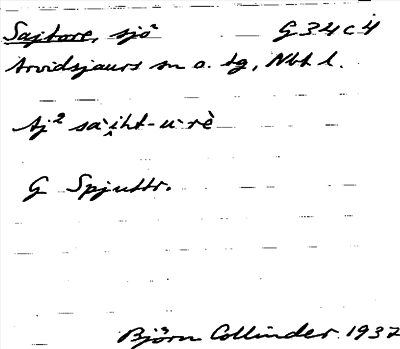 Sajtare, sjö G 34 c 4
Arvidsjaurs sn o. tg, Nbt l.
Aj² sa·i̭ht-u·rè
G Spjuttr.
Björn Collinder 1937